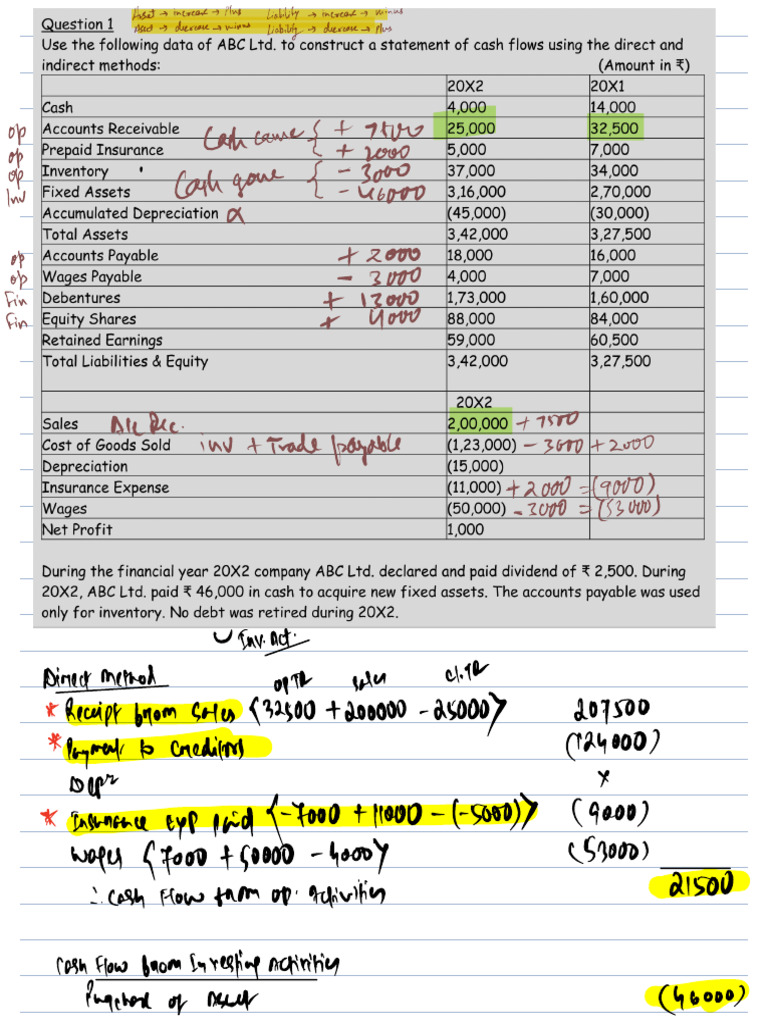 Asset → increase → Plus Liability → increase → minus
Question 1 Asset → decrease → minus Liability → decrease → Plus
Use the following data of ABC Ltd. to construct a statement of cash flows using the direct and
indirect methods: (Amount in ₹)
20X2 20X1
Cash 4,000 14,000
op Accounts Receivable Cash came { + 7500 25,000 32,500
op Prepaid Insurance + 2000 5,000 7,000
op Inventory Cash gone { - 3000 37,000 34,000
Inv Fixed Assets - 46000 3,16,000 2,70,000
Accumulated Depreciation (45,000) (30,000)
Total Assets 3,42,000 3,27,500
op Accounts Payable + 2000 18,000 16,000
op Wages Payable - 3000 4,000 7,000
Fin Debentures + 13000 1,73,000 1,60,000
Fin Equity Shares + 4000 88,000 84,000
Retained Earnings 59,000 60,500
Total Liabilities & Equity 3,42,000 3,27,500
20X2
Sales 2,00,000 + 7500
Cost of Goods Sold inv + Trade payable (1,23,000) - 3000 + 2000
Depreciation (15,000)
Insurance Expense (11,000) + 2000 = (9000)
Wages (50,000) - 3000 = (53000)
Net Profit 1,000
During the financial year 20X2 company ABC Ltd. declared and paid dividend of ₹ 2,500. During
20X2, ABC Ltd. paid ₹ 46,000 in cash to acquire new fixed assets. The accounts payable was used
only for inventory. No debt was retired during 20X2.
Inv. Act.
Direct Method op TR sales cl. TR
* Receipt from Sales (32500 + 200000 - 25000) 207500
* Payment to Creditors (124000)
Depr x
* Insurance exp paid (-7000 + 11000 - (-5000)) (9000)
wages (7000 + 50000 - 4000) (53000)
∴ Cash Flow from op. activities 21500
Cash Flow from Investing Activities
Purchase of Asset (46000)